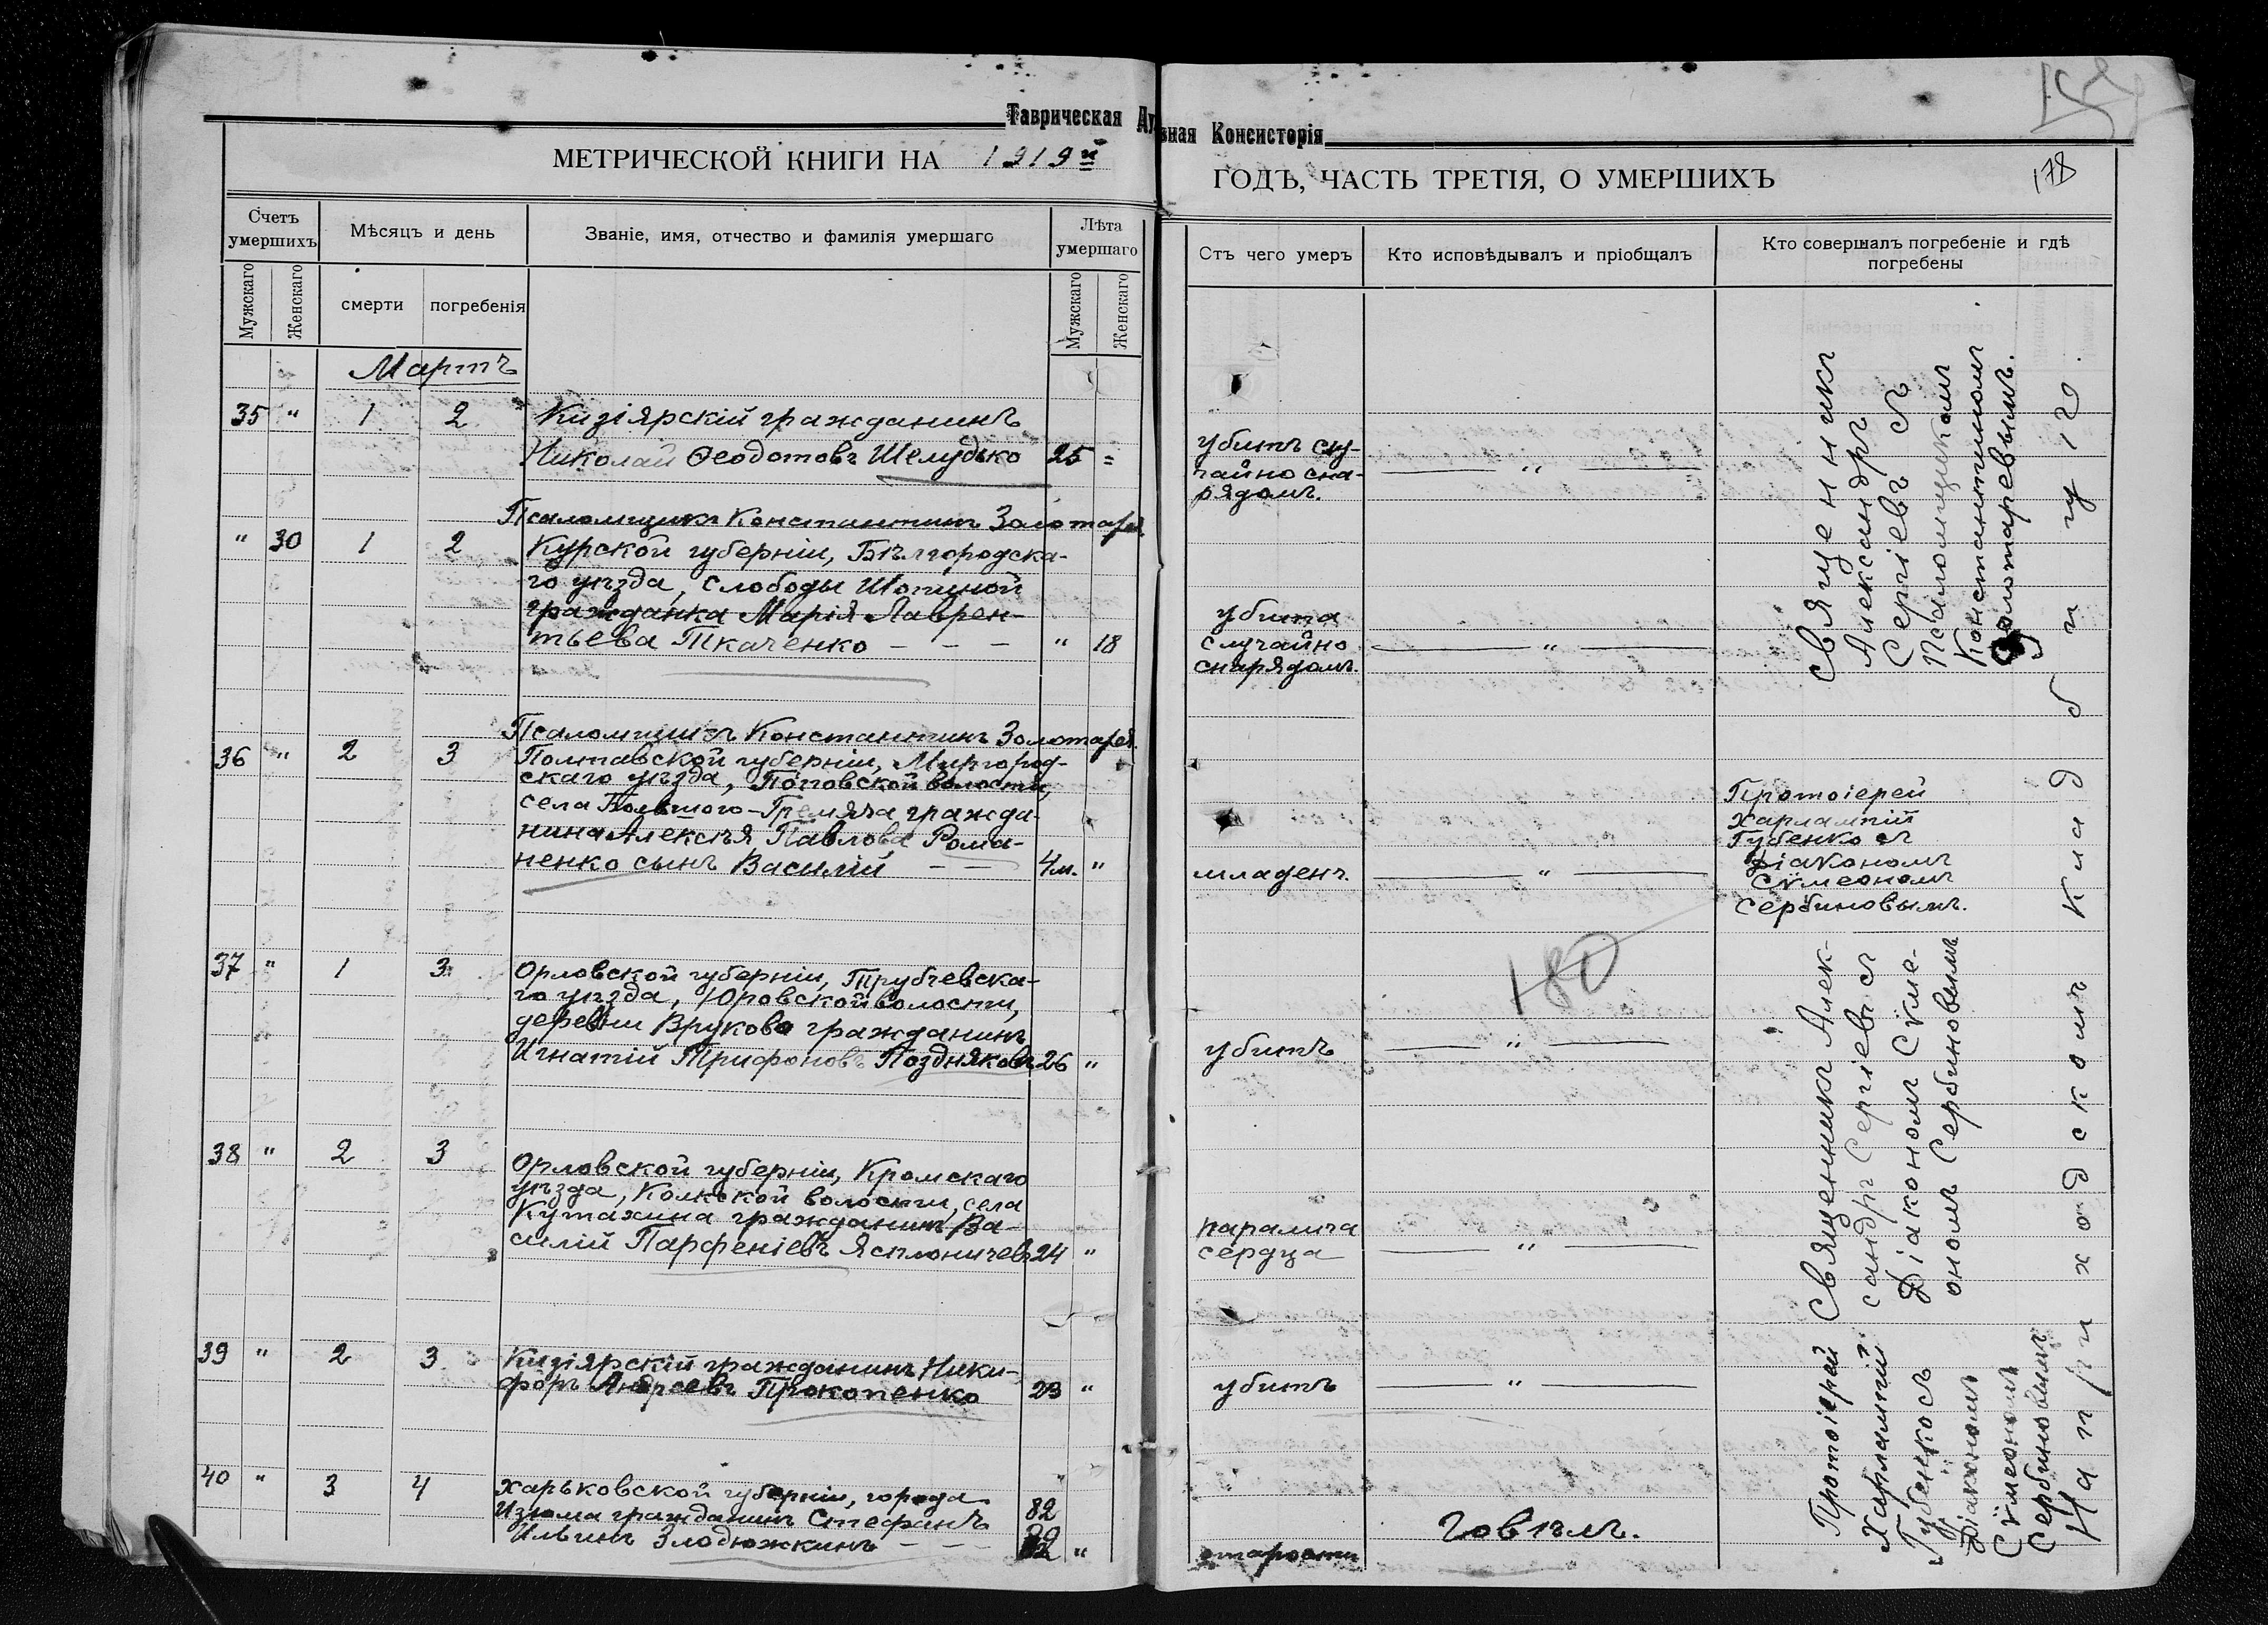 Таврическая Духовная Консисторія
МЕТРИЧЕСКОЙ КНИГИ НА 1919й
ГОДЪ, ЧАСТЬ ТРЕТІЯ, О УМЕРШИХЪ
178
Счетъ умершихъ
Мѣсяцъ и день
Званіе, имя, отчество и фамилія умершаго
Лѣта умершаго
Мужскаго
Женскаго
смерти
погребенія
Мужскаго
Женскаго
Отъ чего умеръ
Кто исповѣдывалъ и пріобщалъ
Кто совершалъ погребеніе и гдѣ
погребены
Мартъ
35 " 1 2 Кизіярскій гражданинъ
Николай Ѳеодотовъ Шелудько 25 =
убитъ слу-
чайно сна-
рядомъ.
"
Псаломщикъ Константинъ Золотарев.
" 30 1 2 Курской губерніи, Бѣлгородска-
го уѣзда, слободы Шопиной
гражданка Марія Лаврен-
тьева Ткаченко - - - " 18
убита
случайно
снарядомъ.
"
Священникъ
Александръ
Сергіевъ съ
Псаломщикомъ
Константиномъ
Золотаревымъ.
Псаломщикъ Константинъ Золотарев.
36 " 2 3 Полтавской губерніи, Миргород-
скаго уѣзда, Поповской волости,
села Большого-Гремяча гражда-
нина Алексѣя Павлова Рома-
ненко сынъ Василій - - 4м. "
младенч.
"
Протоіерей
Харлампій
Губенко съ
Діакономъ
Сѵмеономъ
Сербиновымъ.
180
37 " 1 3 Орловской губерніи, Трубчевска-
го уѣзда, Юровской волости,
деревни Вруково гражданинъ
Игнатій Трифоновъ Поздняковъ 26 "
убитъ
"
38 " 2 3 Орловской губерніи, Кромскаго
уѣзда, Колкской волости, села
Кутахина гражданинъ Ва-
силій Парфеніевъ 24 "
паралича
сердца
"
Священникъ Алек-
сандръ Сергіевъ съ
Діакономъ Сѵме-
ономъ Сербиновымъ
39 " 2 3 Кизіярскій гражданинъ Ники-
форъ Андреевъ Прокопенко 23 "
убитъ
"
40 " 3 4 Харьковской губерніи, города
Изюма гражданинъ Стефанъ 82
Ильинъ Злодюжкинъ - - - 82 "
старости
Говѣлъ.
Протоіерей
Харлампій
Губенко съ
Діакономъ
Сѵмеономъ
Сербиновымъ
На приходскомъ кладбищѣ.